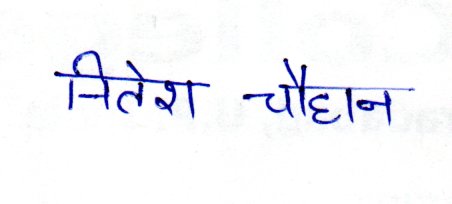 नितेश चौहान